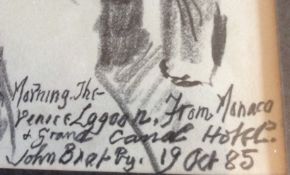 Morning. The
Venice Lagoon. From Monaco
& Grand Canal Hotel.
John Bratby. 19 Oct 85